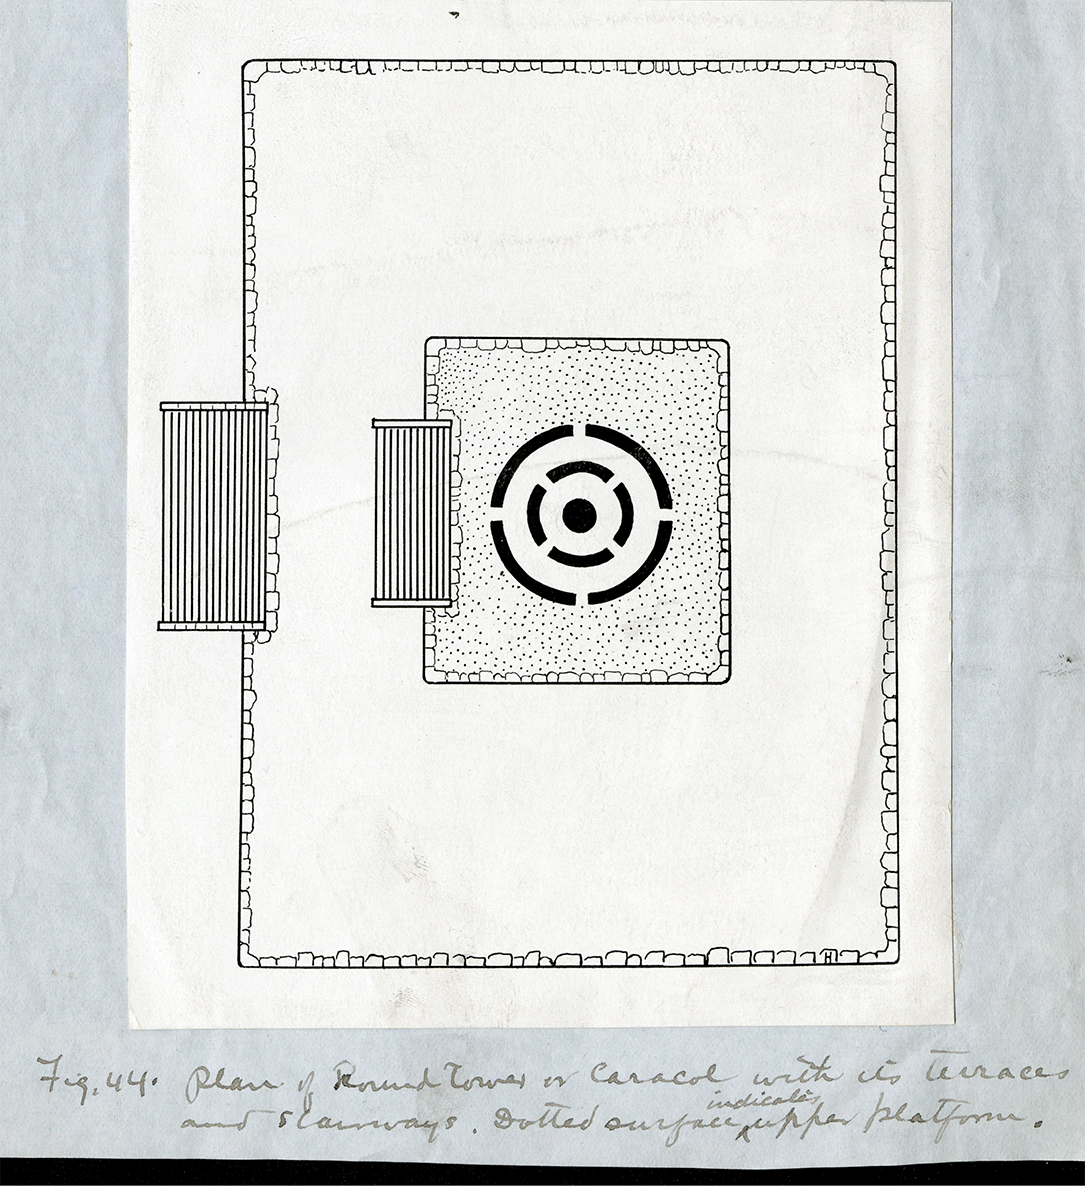 Fig. 44. Plan of Round Tower or Caracol with its terraces
indicates
and Stairways. Dotted surface ‸ upper platform.